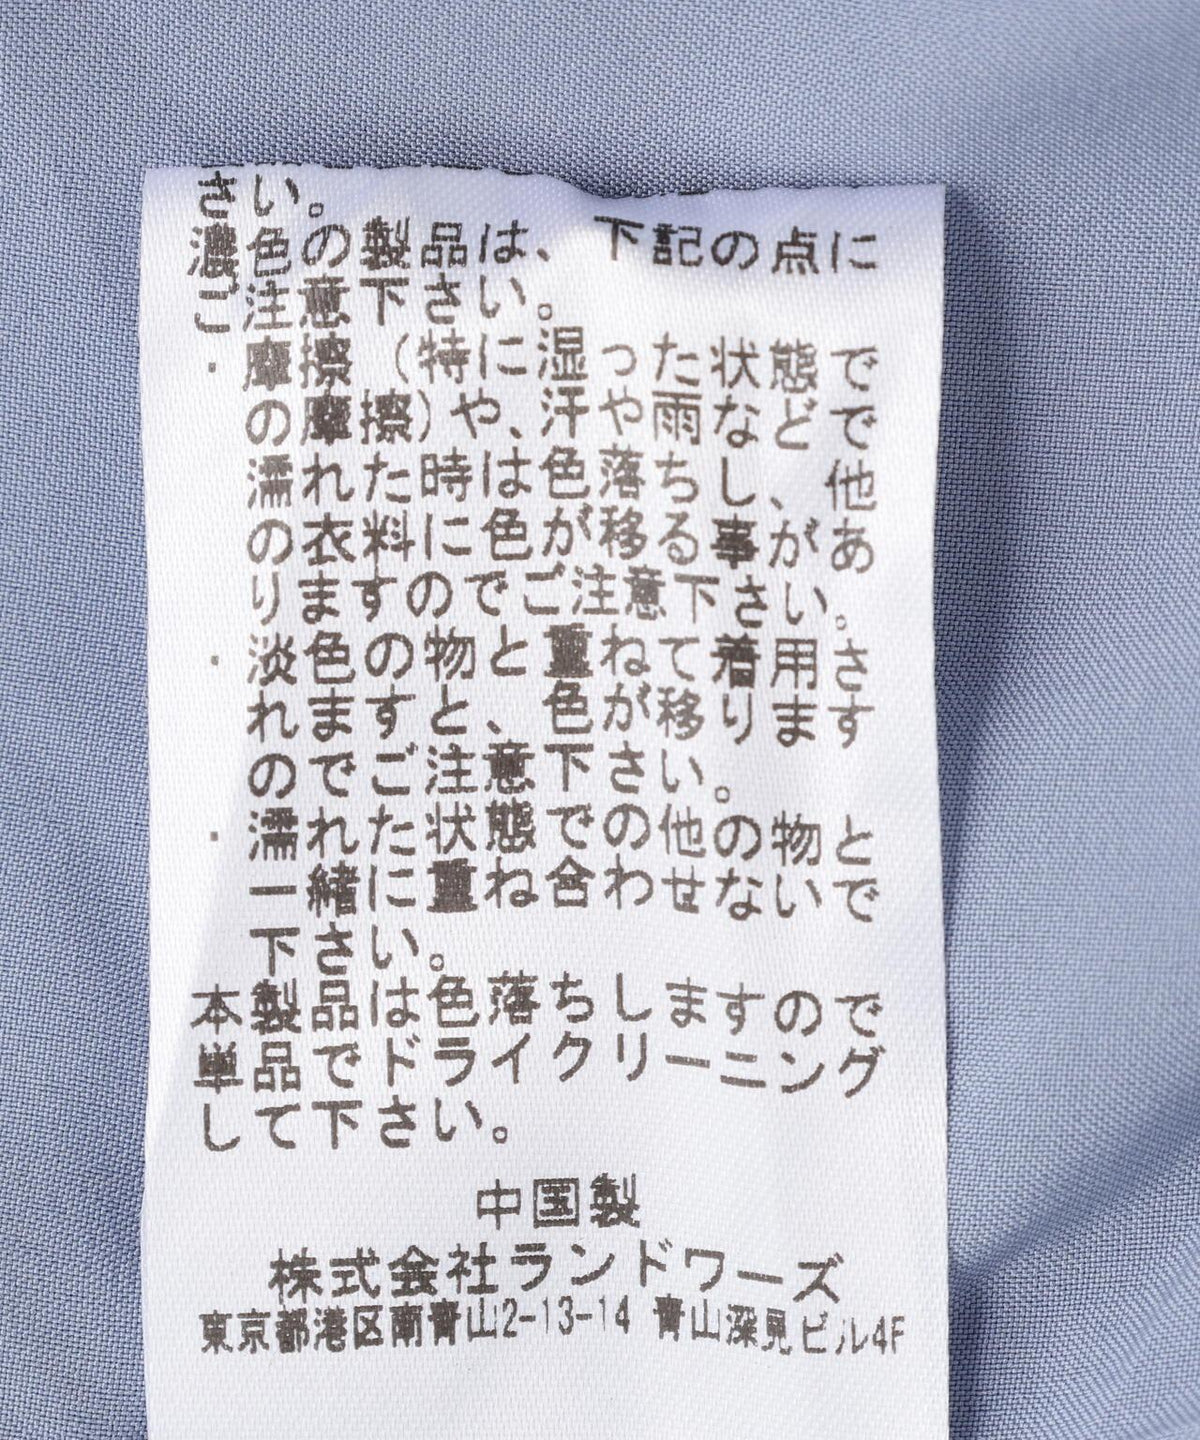 さい。
濃色の製品は、下記の点に
ご注意下さい。
・摩擦(特に湿った状態で
の摩擦)や、汗や雨などで
濡れた時は色落ちし、他
の衣料に色が移る事があ
りますのでご注意下さい。
・淡色の物と重ねて着用さ
れますと、色が移ります
のでご注意下さい。
・濡れた状態での他の物と
一緒に重ね合わせないで
下さい。
本製品は色落ちしますので
単品でドライクリーニング
して下さい。
中国製
株式会社ランドワーズ
東京都港区南青山2-13-14 青山深見ビル4F